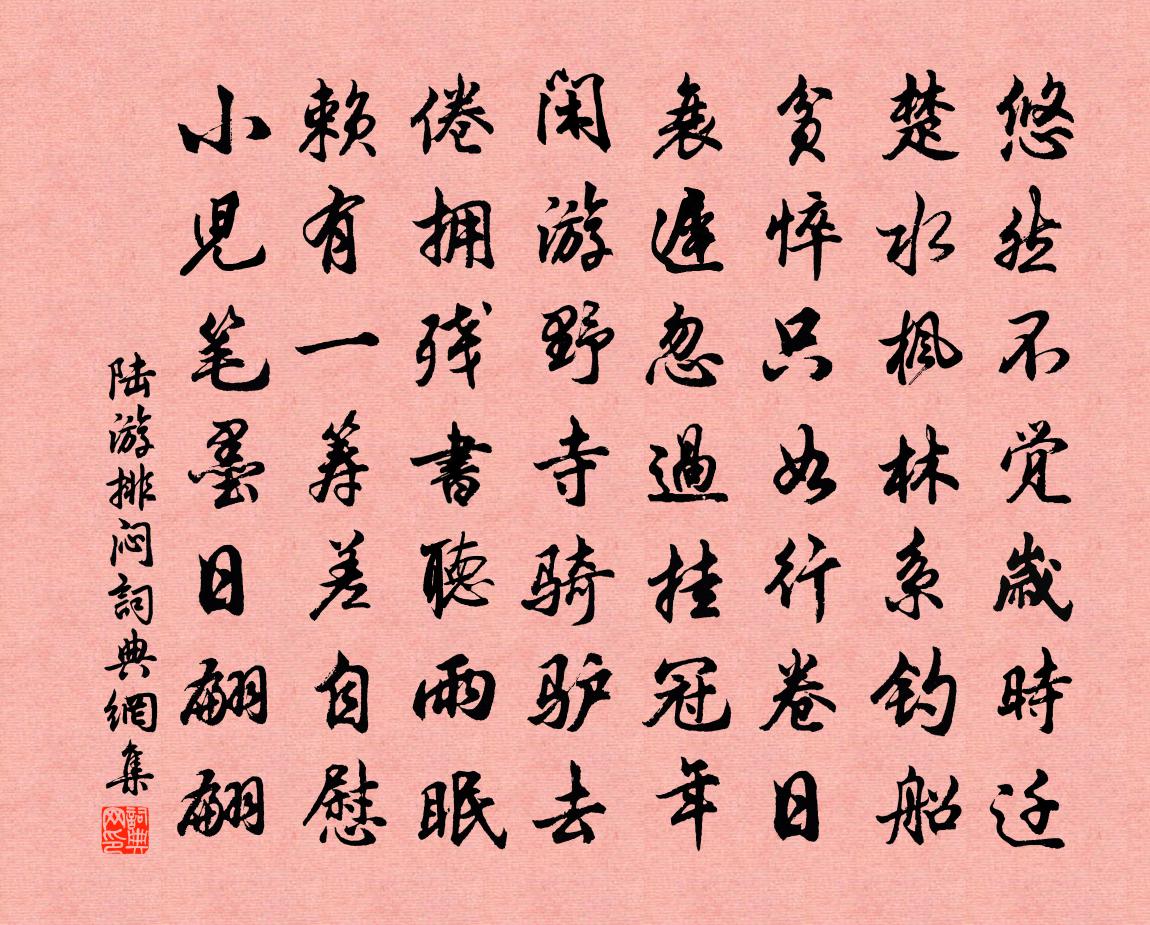 悠然不觉歲時迁
楚水枫林系钓船
贫悴只如行卷日
衰遲忽過挂冠年
闲游野寺骑驴去
倦拥残書聴雨眠
赖有一筹差自慰
小児笔墨日翩翩
陆游排闷詞典網集
詞典网印